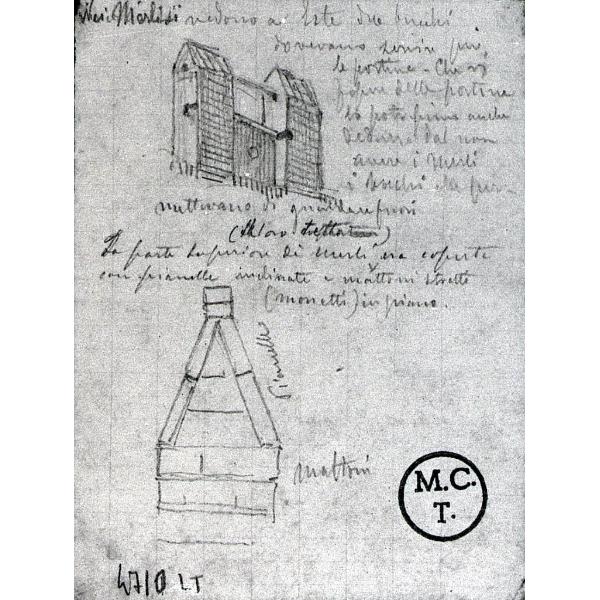 Nei Merli si vedono a Este due buchi
dovevano servire per
le portine - Che vi
delle portine
lo anche
dal non
avere i merli
i buchi che per-
mettevano di fuori
(Al loro
La parte superiore dei merli era coperta
con pianelle inclinate e mattoni stretti
(monetti) in piano.
Pianelle
mattoni
M.C.
T.
4710 LT